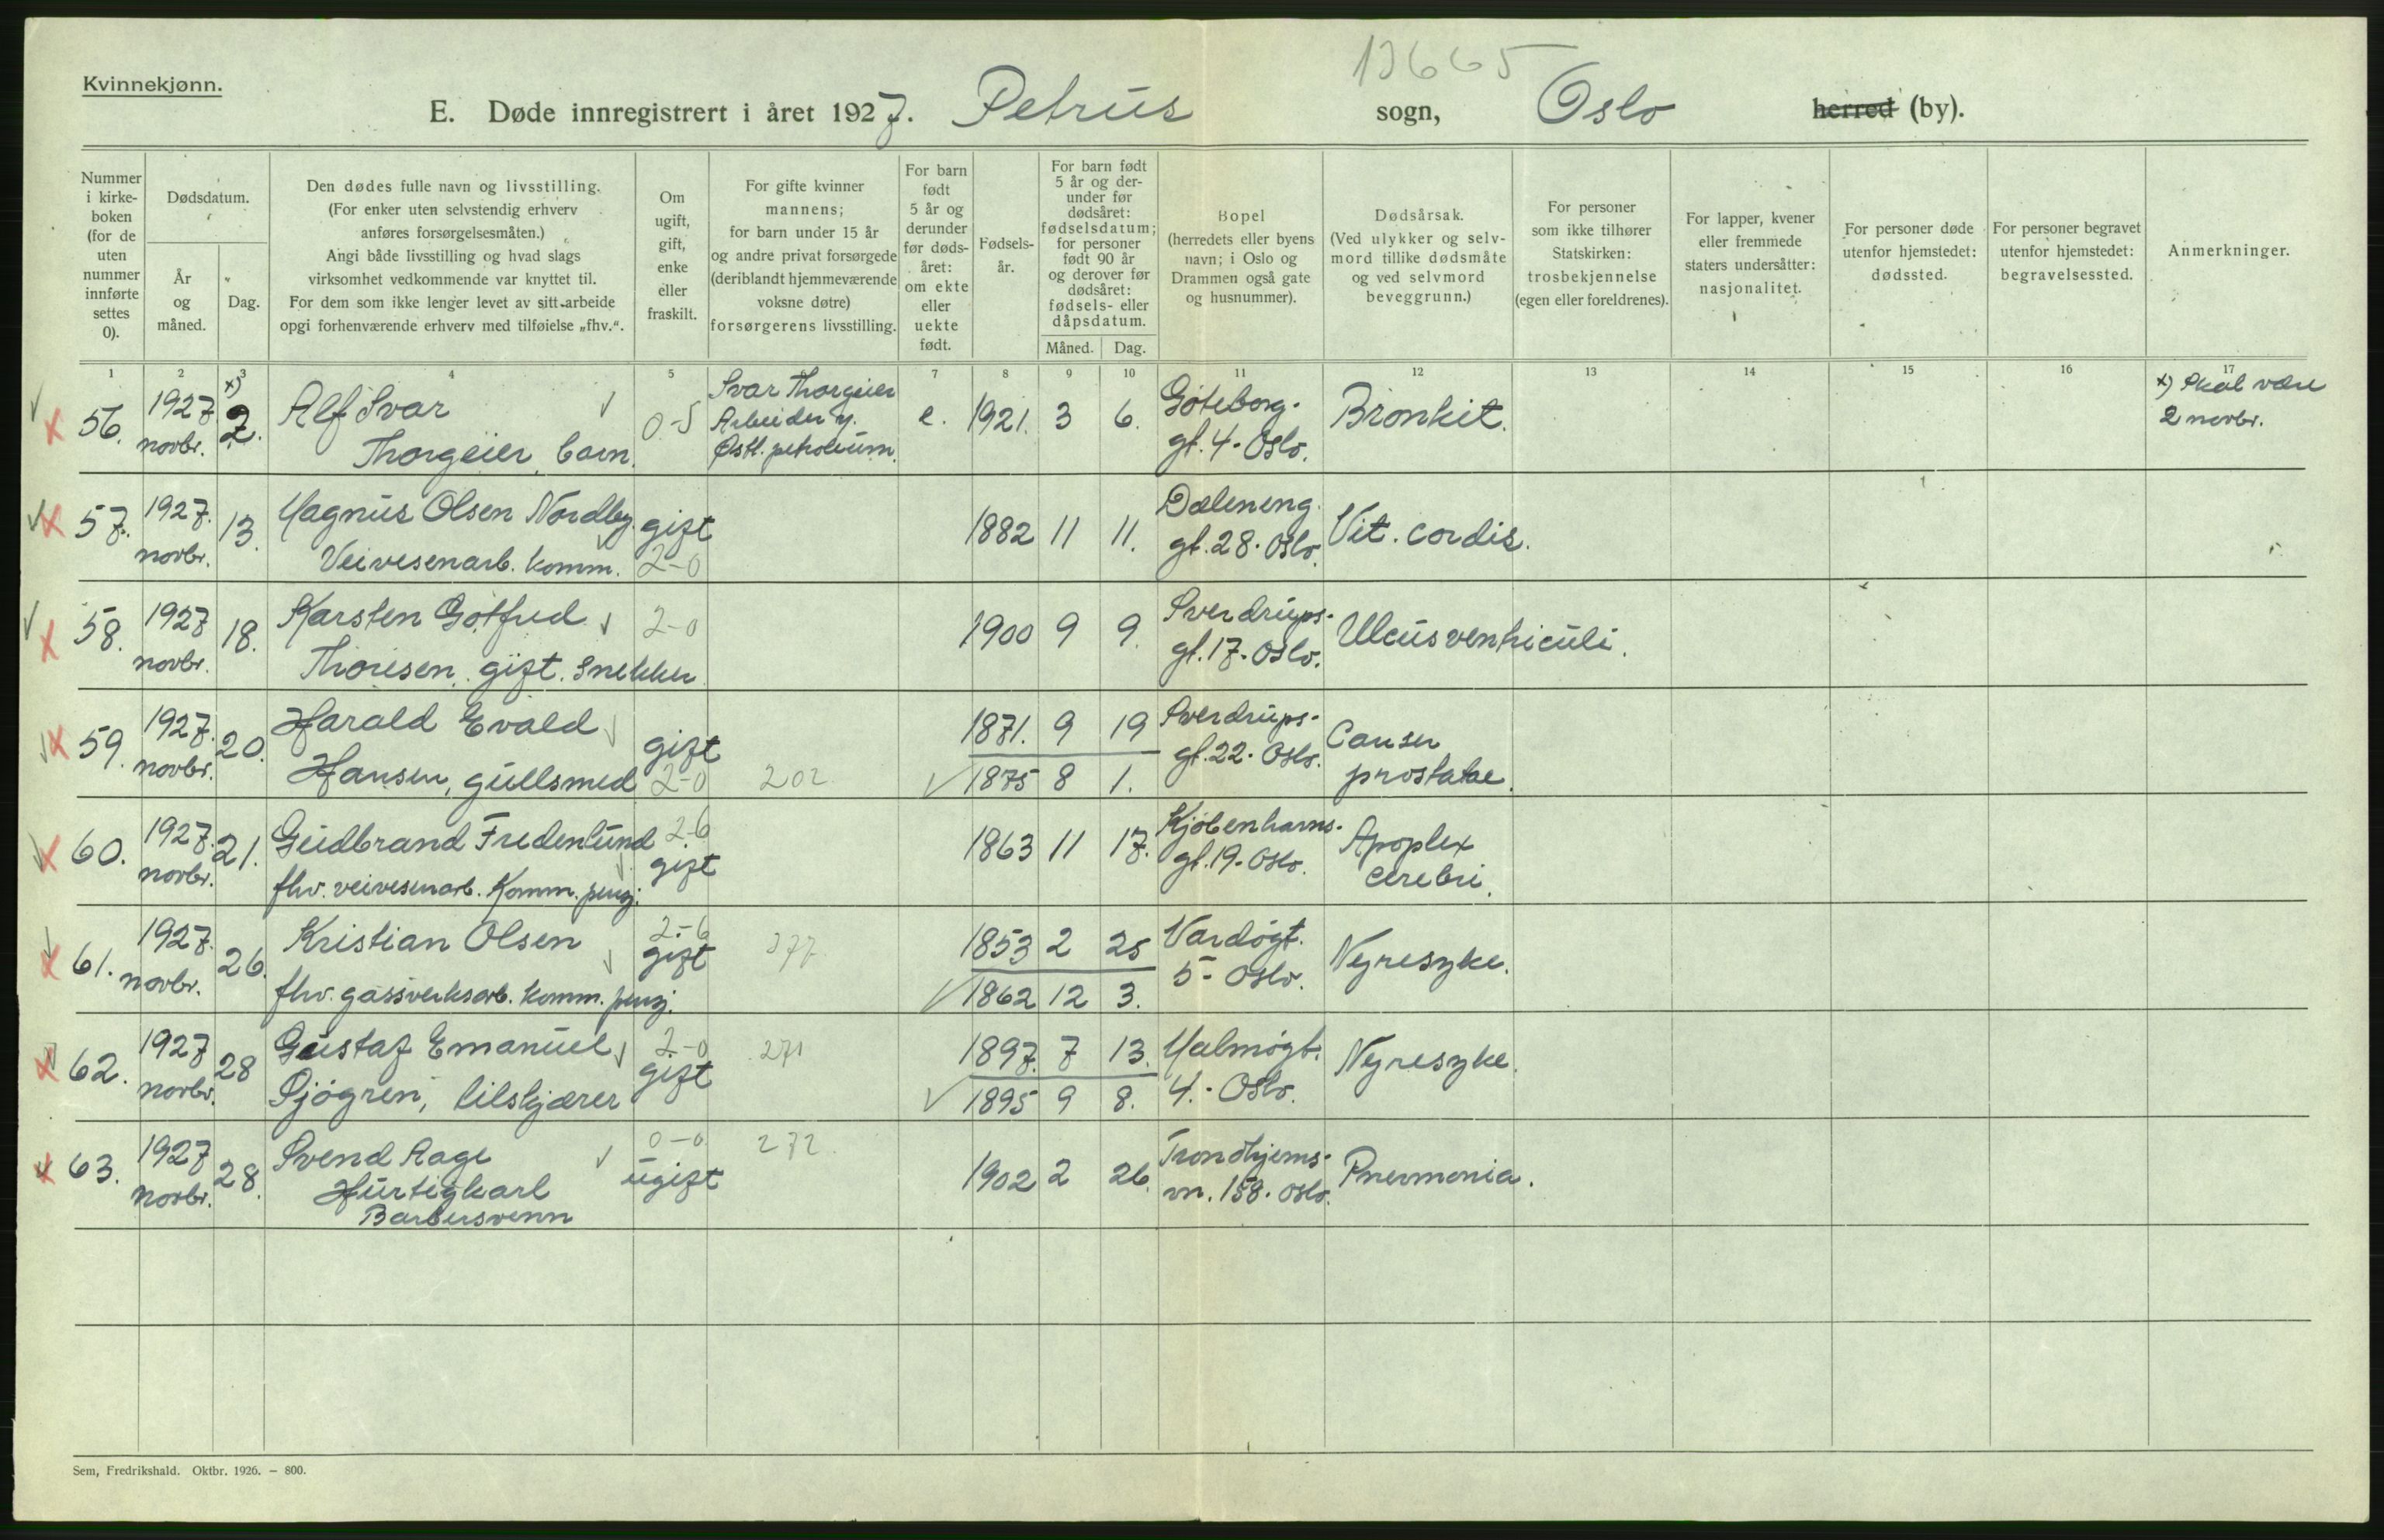 13665
Kvinnekjønn.
E. Døde innregistrert i året 1927. Petrus sogn, Oslo herred (by).
Nummer i kirke-boken (for de uten nummer innførte settes 0).
Dødsdatum.
År og måned.
Dag.
Den dødes fulle navn og livsstilling.
(For enker uten selvstendig erhverv
anføres forsørgelsesmåten.)
Angi både livsstilling og hvad slags
virksomhet vedkommende var knyttet til.
For dem som ikke lenger levet av sitt arbeide
opgi forhenværende erhverv med tilføielse „fhv.“.
Om ugift, gift, enke eller fraskilt.
For gifte kvinner
mannens;
for barn under 15 år
og andre privat forsørgede
(deriblandt hjemmeværende
voksne døtre)
forsørgerens livsstilling.
For barn født 5 år og derunder før døds-året: om ekte eller uekte født.
Fødsels-år.
For barn født
5 år og der-
under før
dødsåret:
fødselsdatum;
for personer
født 90 år
og derover før
dødsåret:
fødsels- eller
dåpsdatum.
Måned.
Dag.
Bopel
(herredets eller byens
navn; i Oslo og
Drammen også gate
og husnummer).
Dødsårsak.
(Ved ulykker og selv-
mord tillike dødsmåte
og ved selvmord
beveggrunn.)
For personer
som ikke tilhører
Statskirken:
trosbekjennelse
(egen eller foreldrenes).
For lapper, kvener
eller fremmede
staters undersåtter:
nasjonalitet.
For personer døde
utenfor hjemstedet:
dødssted.
For personer begravet
utenfor hjemstedet:
begravelsessted.
Anmerkninger.
1 2 3 4 5 6 7 8 9 10 11 12 13 14 15 16 17
56. 1927 novbr. x) 2. Alf Ivar
Thorgeier, barn. 0-5 Ivar Thorgeier
Arbeider v.
Østl. petroleum. e. 1921. 3 6. Göteborg-
gt. 4 - Oslo. Bronkit. x) Skal være
2 novbr.
57. 1927. novbr. 13. Magnus Olsen Nordby
Veivesenarb. komm. gift 2-0 1882 11 11. Dæleneng.
gt. 28. Oslo. Vit. cordis.
58. 1927 novbr. 18. Karsten Gotfred
Thoresen, gift. Snekker 2-0 1900 9 9. Sverdrups-
gt. 17 - Oslo. Ulcus ventriculi.
59. 1927. novbr. 20. Harald Evald
Hansen, gullsmed gift 2-0 202 1871. 9 19
1875 8 1. Sverdrups-
gt. 22. Oslo. Canser
prostatae.
60. 1927. novbr. 21. Gudbrand Fredenlund
fhv. veivesenarb. Komm. pensj. 2-6 gift 1863 11 17. Kjøbenhavns-
gt. 19 - Oslo. Apoplex
cerebri.
61. 1927. novbr. 26. Kristian Olsen
fhv. gassverksarb. komm. pensj. 2-6 gift 277 1853 2 25
1862 12 3. Vardøgt.
5 - Oslo. Nyresyke.
62. 1927 novbr. 28 Gustaf Emanuel
Sjögren, tilskjærer 2-0 gift 271 1897. 7 13.
1895 9 8. Malmøgt.
4. - Oslo. Nyresyke.
63. 1927 novbr. 28. Svend Aage
Hurtigkarl
Barbersvenn 0-0 ugift 272. 1902 2 26. Trondhjems-
vn. 158. Oslo. Pnevmonia.
Sem, Fredrikshald. Oktbr. 1926. — 800.